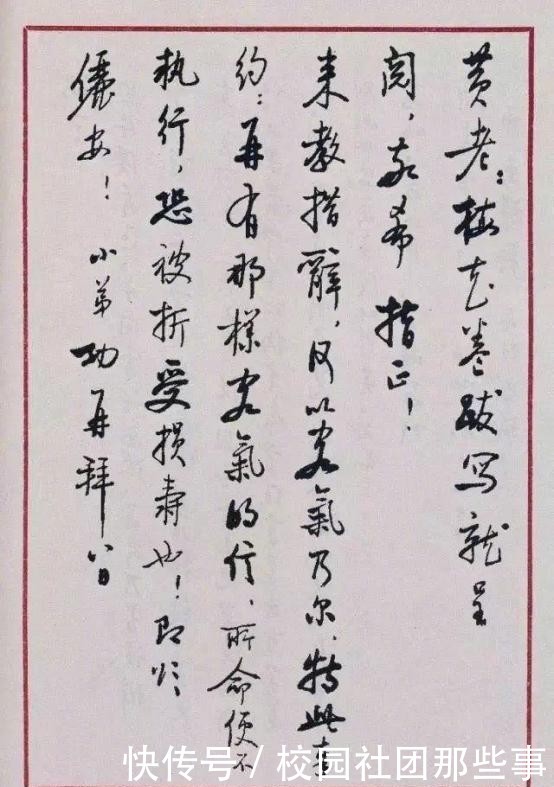 黄老：梅花卷跋写就呈
阅，敬希 指正！
来教措辞，何以客氣乃尔，特此奉
约：再有那樣客氣的信，所命便不
执行，恐被折受损寿也！即颂
俪安！
小弟功再拜 八日
快传号/校园社团那些事